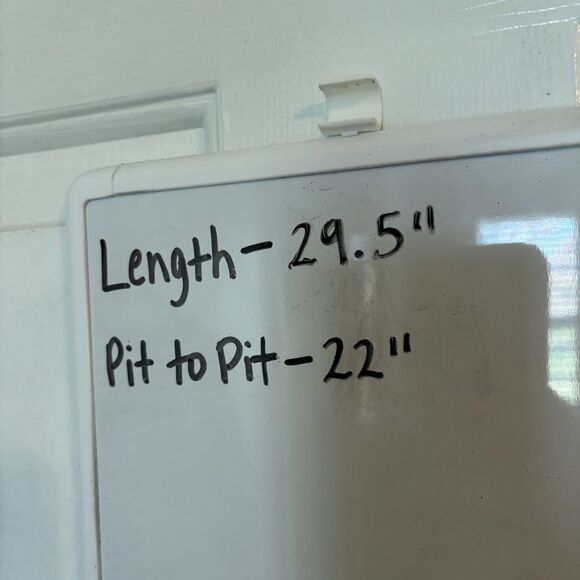 Length - 29.5"
Pit to Pit - 22"